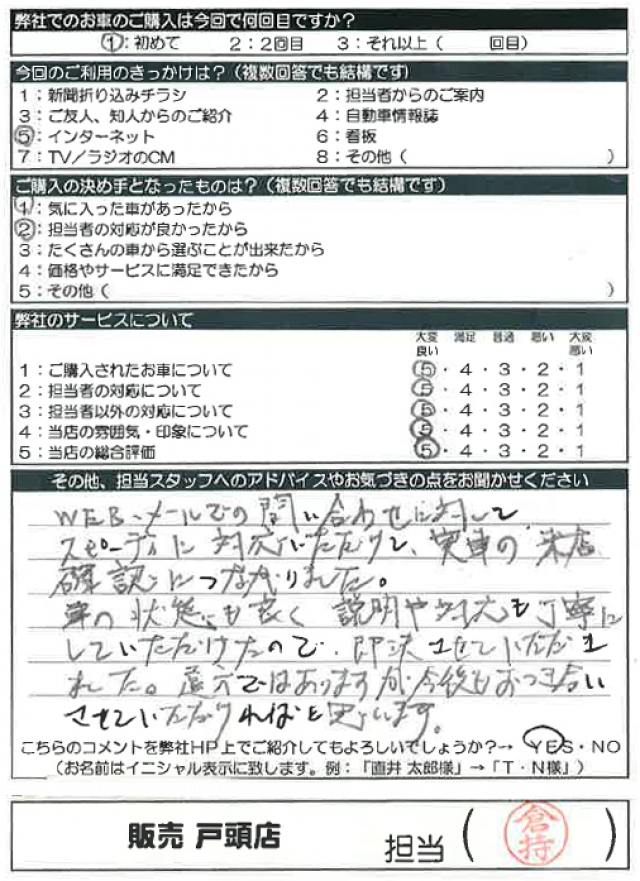 弊社でのお車のご購入は今回で何回目ですか?
1:初めて 2:2回目 3:それ以上( 回目)
今回のご利用のきっかけは?(複数回答でも結構です)
1:新聞折り込みチラシ 2:担当者からのご案内
3:ご友人、知人からのご紹介 4:自動車情報誌
5:インターネット 6:看板
7:TV/ラジオのCM 8:その他( )
ご購入の決め手となったものは?(複数回答でも結構です)
1:気に入った車があったから
2:担当者の対応が良かったから
3:たくさんの車から選ぶことが出来たから
4:価格やサービスに満足できたから
5:その他( )
弊社のサービスについて
大変良い 満足 普通 悪い 大変悪い
1:ご購入されたお車について 5・4・3・2・1
2:担当者の対応について 5・4・3・2・1
3:担当者以外の対応について 5・4・3・2・1
4:当店の雰囲気・印象について 5・4・3・2・1
5:当店の総合評価 5・4・3・2・1
その他、担当スタッフへのアドバイスやお気づきの点をお聞かせください
WEB・メールでの問い合わせに対して
スピーディに対応いただけて、実車の来店
確認につながりました。
車の状態も良く説明や対応も丁寧に
していただけたので、即決させていただき
ました。遠方ではありますが今後もおつき合い
させていただければと思います。
こちらのコメントを弊社HP上でご紹介してもよろしいでしょうか?→ YES・NO
(お名前はイニシャル表示に致します。例:「直井 太郎様」→「T・N様」)
販売 戸頭店 担当( 倉持 )